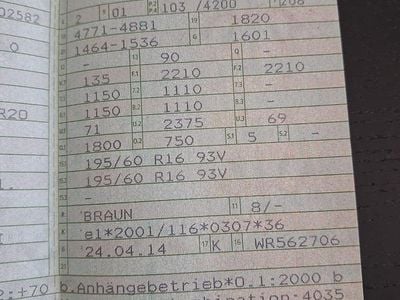 02582
2 01 103 /4200 208
4771-4881 19 1820
1464-1536 G 1601
0 - 13 90 Q -
135 F.1 2210 F.2 2210
1150 7.2 1110 7.3 -
1150 8.2 1110 8.3 -
R20 71 U.2 2375 U.3 69
1800 O.2 750 S.1 5 S.2 -
195/60 R16 93V
195/60 R16 93V
-
BRAUN 11 8/-
K e1*2001/116*0307*36
6 24.04.14 17 K 16 WR562706
21
:+70 b.Anhängebetrieb*0.1:2000 b
:4035